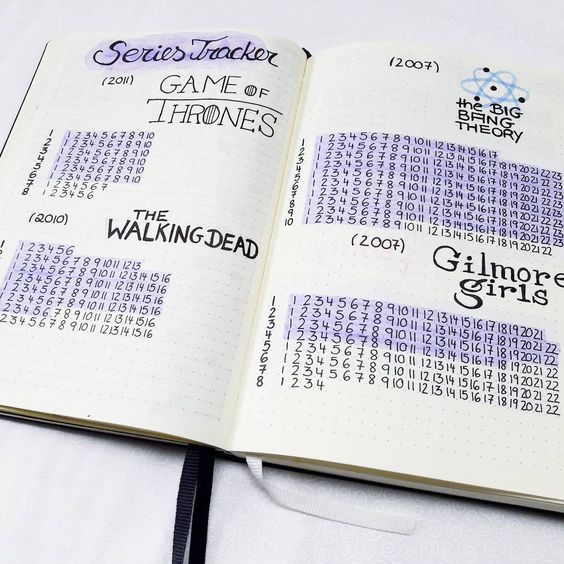 Series Tracker
(2011) GAME OF
THRONES
1 1 2 3 4 5 6 7 8 9 10
2 1 2 3 4 5 6 7 8 9 10
3 1 2 3 4 5 6 7 8 9 10
4 1 2 3 4 5 6 7 8 9 10
5 1 2 3 4 5 6 7 8 9 10
6 1 2 3 4 5 6 7 8 9 10
7 1 2 3 4 5 6 7
8 1 2 3 4 5 6
(2010) THE
WALKING DEAD
1 2 3 4 5 6
1 2 3 4 5 6 7 8 9 10 11 12 13
1 2 3 4 5 6 7 8 9 10 11 12 13 14 15 16
1 2 3 4 5 6 7 8 9 10 11 12 13 14 15 16
1 2 3 4 5 6 7 8 9 10 11 12 13 14 15 16
1 2 3 4 5 6 7 8 9 10 11 12 13 14 15 16
1 2 3 4 5 6 7 8 9 10 11 12 13 14 15 16
2 3 4 5 6 7 8 9 10 11 12 13 14 15 16
(2007)
the BIG
BANG
THEORY
1 1 2 3 4 5 6 7 8 9 10 11 12 13 14 15 16 17
2 1 2 3 4 5 6 7 8 9 10 11 12 13 14 15 16 17 18 19 20 21 22 23
3 1 2 3 4 5 6 7 8 9 10 11 12 13 14 15 16 17 18 19 20 21 22 23
4 1 2 3 4 5 6 7 8 9 10 11 12 13 14 15 16 17 18 19 20 21 22 23
5 1 2 3 4 5 6 7 8 9 10 11 12 13 14 15 16 17 18 19 20 21 22 23
6 1 2 3 4 5 6 7 8 9 10 11 12 13 14 15 16 17 18 19 20 21 22 23
7 1 2 3 4 5 6 7 8 9 10 11 12 13 14 15 16 17 18 19 20 21 22 23
8 1 2 3 4 5 6 7 8 9 10 11 12 13 14 15 16 17 18 19 20 21 22 23
9 1 2 3 4 5 6 7 8 9 10 11 12 13 14 15 16 17 18 19 20 21 22 23
10 1 2 3 4 5 6 7 8 9 10 11 12 13 14 15 16 17 18 19 20 21 22
(2007) Gilmore
girls
1 1 2 3 4 5 6 7 8 9 10 11 12 13 14 15 16 17 18 19 20 21
2 1 2 3 4 5 6 7 8 9 10 11 12 13 14 15 16 17 18 19 20 21 22
3 1 2 3 4 5 6 7 8 9 10 11 12 13 14 15 16 17 18 19 20 21 22
4 1 2 3 4 5 6 7 8 9 10 11 12 13 14 15 16 17 18 19 20 21 22
5 1 2 3 4 5 6 7 8 9 10 11 12 13 14 15 16 17 18 19 20 21 22
6 1 2 3 4 5 6 7 8 9 10 11 12 13 14 15 16 17 18 19 20 21 22
7 1 2 3 4 5 6 7 8 9 10 11 12 13 14 15 16 17 18 19 20 21 22
8 1 2 3 4